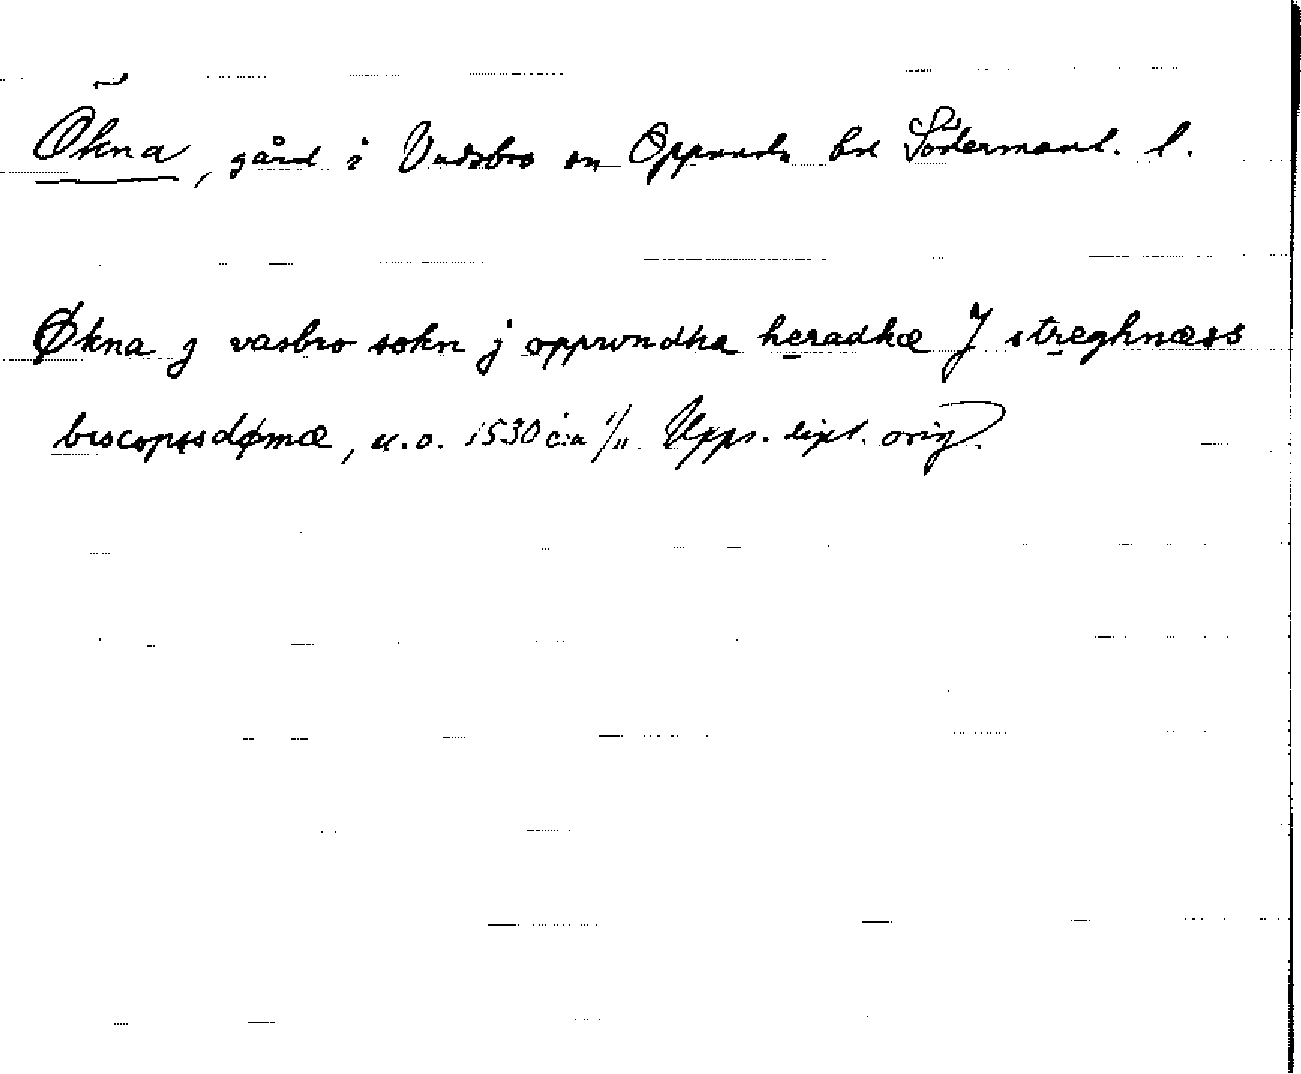 Ökna, gård i Vadsbro sn Oppunda hd Södermanl. l.
Økna j vasbro sokn j opprvndha heradhæ J streghnæss
biscopssdømæ, u.o. 1530 c:a 1/11 Upps. dipl. orig.